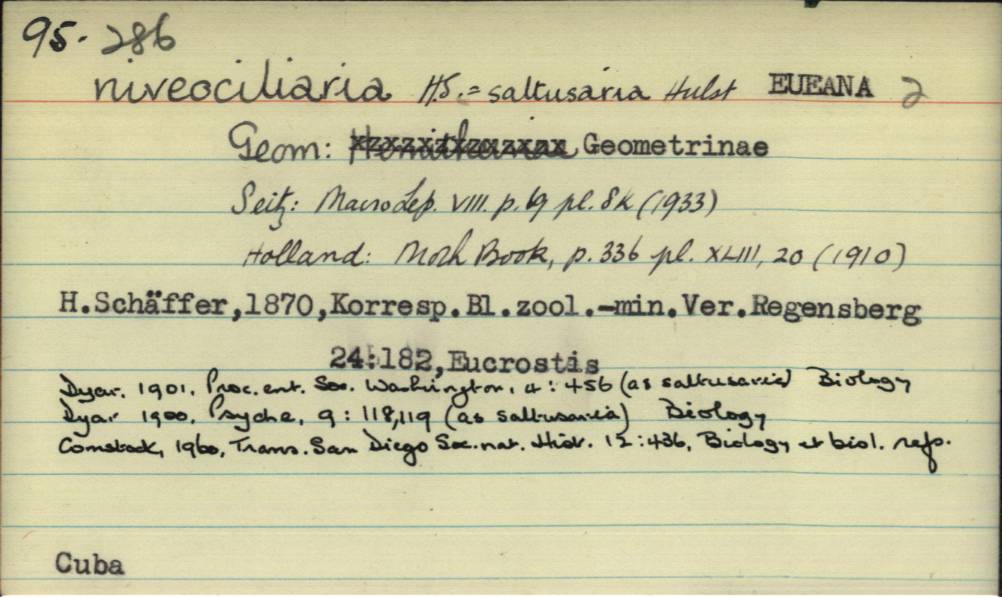 95-286
niveociliaria HS. = saltusaria Hulst EUEANA 2
Geom: Geometrinae
Seitz: MacroLep. VIII. p.69 pl. 8k (1933)
Holland: Moth Book, p. 336 pl. XLIII, 20 (1910)
H.Schäffer,1870,Korresp.Bl.zool.-min.Ver.Regensberg
24:182,Eucrostis
Dyar. 1901, Proc. ent. Soc. Washington, 4: 456 (as saltusaria) Biology
Dyar 1900, Psyche, 9: 118,119 (as saltusaria) Biology
Comstock, 1960, Trans. San Diego Soc. nat. Hist. 12: 436, Biology et biol. refs.
Cuba